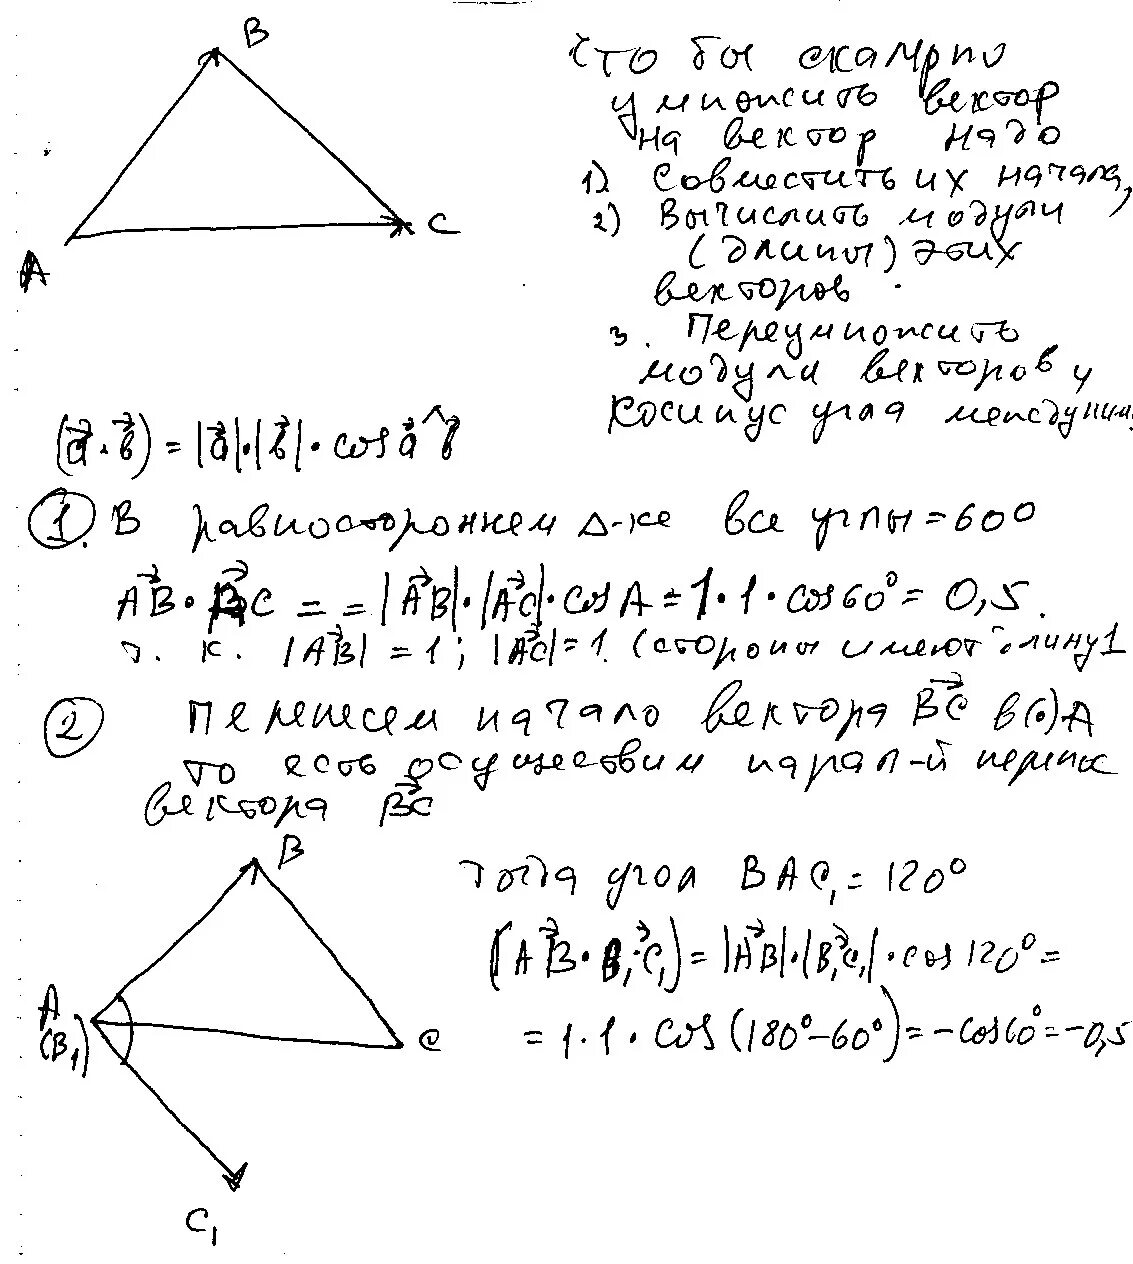 B
C
A
Что бы скалярно
умножить вектор
на вектор надо
1). Совместить их начала,
2) Вычислить модули
(длины) этих
векторов.
3. Переумножить
модули векторов и
косинус угла между ними.
(a⃗·b⃗) = |a⃗|·|b⃗|·cos a⃗^b⃗
1. В равностороннем Δ-ке все углы = 60°
AB⃗ · C = = |AB⃗|·|AC⃗|·cosA = 1·1·cos60° = 0,5.
т. к. |AB⃗| = 1; |AC⃗| = 1. (стороны имеют длину 1
2 Перенесем начало вектора BC⃗ в (·) A
то есть осуществим парал-й перенос
вектора BC⃗
B
A
(B₁)
C
C₁
Тогда угол BAC₁ = 120°
(AB⃗ · B₁C₁⃗) = |AB⃗|·|B₁C₁⃗|·cos120° =
= 1·1·cos(180°-60°) = -cos60° = -0,5